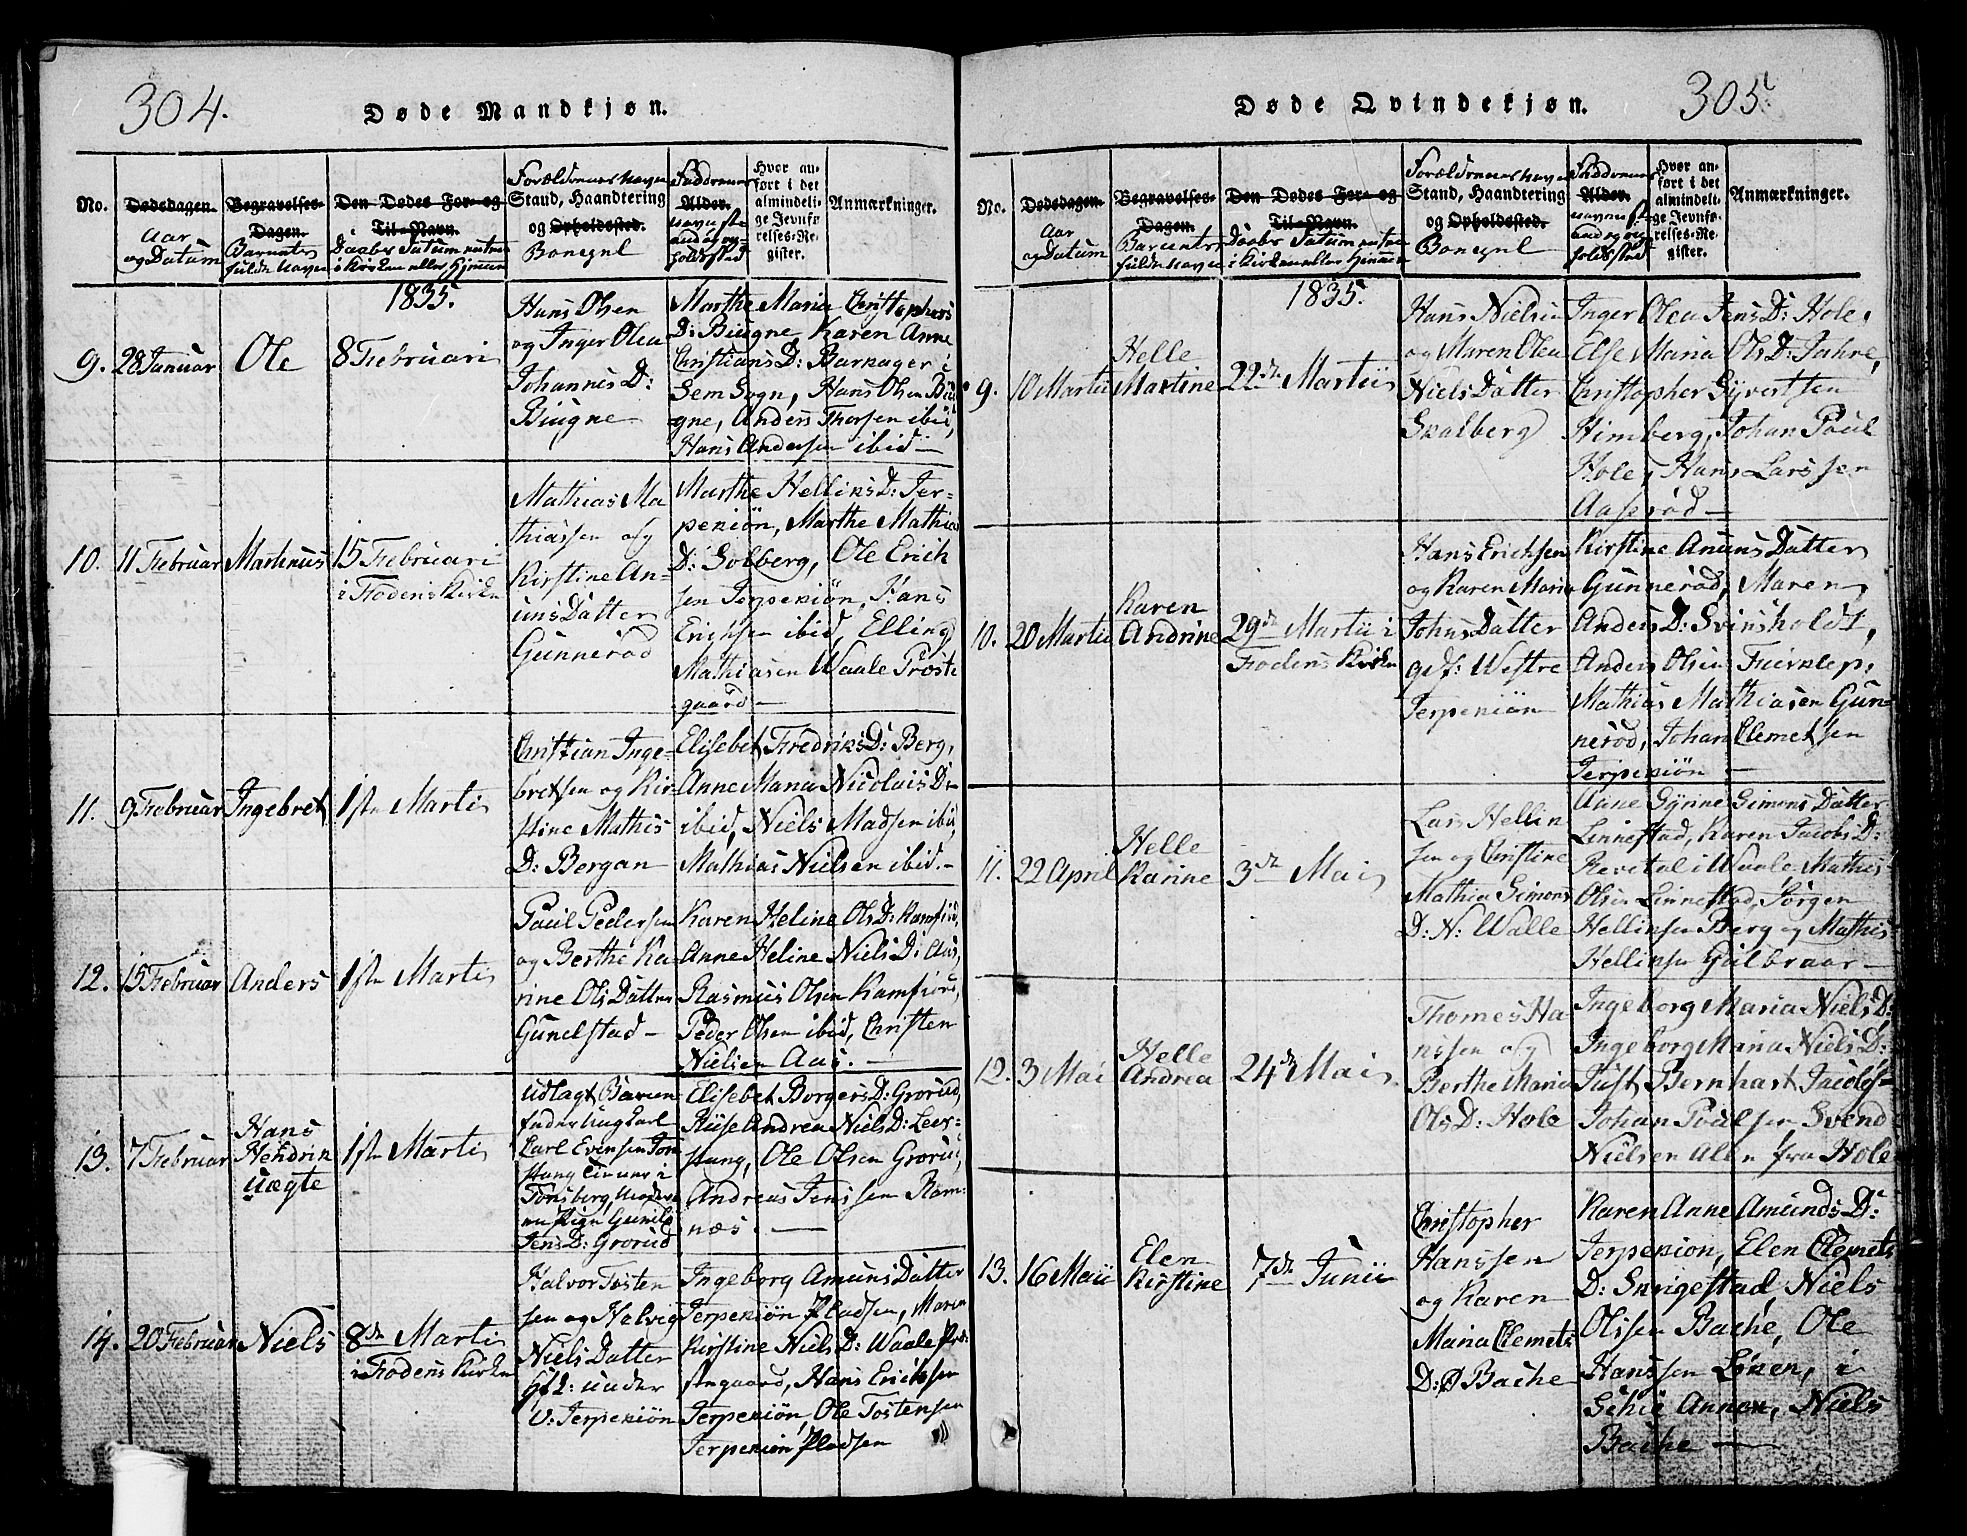 304.
Døde Mandkjøn.
No.
Dødsdagen.
Aar
og Datum
Begravelses-
Dagen.
Barnets
fulde Navn
Den Dødes For- og
Til-Navn.
Daabs Datum enten
i Kirken eller Hjemme
Forældrenes Navn
Stand, Haandtering
og Opholdssted.
Bopæl
Faddernes
Alder.
Hvor an-
ført i det
almindeli-
ge Jevnfø-
relses-Re-
gister.
Anmærkninger.
1835.
9.
28 Januar
Ole
8 Februari
Hans Olsen
og Inger Olea
Johannis D:
Biugne
Marthe Maria Christophers
D: Biugne, Karen Anne
Christians D: Barkager i
Sem Sogn, Hans Olsen Biu
gne, Anders Thorsen ibid,
Hans Andersen ibid -
10.
11 Februar
Martinus
15 Februari
i Fodens Kirke
Mathias Ma
thiassen og
Kirstine An-
uns Datter
Gunnerød
Marthe Hellins D: Jer-
pekiøn, Marthe Mathia
D: Solberg, Ole Erich
sen Jerpekiøn, Hans
Erichsen ibid, Elling
Mathiasen Waale Præste
gaard -
11.
9 Februar
Ingebret
1ste Marti
Christian Inge-
bretsen og Kir-
stine Mathis
D: Bergan
Elisebet Fredriks D: Berg,
Anne Maria Nicolais D:
ibid, Niels Madsen ibid,
Mathias Nielsen ibid. -
12.
15 Februar
Anders
1ste Marti
Paul Pedersen
og Berthe Ka-
rine Ols Datter
Gunelstad -
Karen Heline Ols D: Ramfiord,
Anne Heline Niels D: Aas,
Rasmus Olsen Ramfiord,
Peder Olsen ibid, Christen
Nielsen Aas. -
13.
7 Februar
Hans
Hendrik
Uægte
1ste Marti
Udlagt Barne
fader Ungkarl
Carl Evensen
Tiener i
Tønsberg,
Pige Gunild
Jens D: Grorud
Elisebet Borgers D: Grorud,
Andrea Niels D: Leer-
stang, Ole Olsen Grorud,
Andreas Jenssen Ram-
næs. -
14.
20 Februar
Niels
8de Marti
i Fodens Kirke
Halvor Tosten
sen og Helvig
Niels Datter
under
V: Jerpekiøn
Ingeborg Amuns Datter
Jerpekiøn Pladsen, Maren
Kirstine Niels D: Waale Præ-
stegaard, Hans Erichsen
Jerpekiøn, Ole Tostensen
Jerpekiøn Pladsen
305.
Døde Qvindekjøn.
No.
Dødsdagen.
Aar
og Datum
Begravelses-
Dagen.
Barnets
fulde Navn
Den Dødes For- og
Til-Navn.
Daabs Datum enten
i Kirken eller Hjemme
Forældrenes Navn
Stand, Haandtering
og Opholdssted.
Bopæl
Faddernes
Alder.
Hvor an-
ført i det
almindeli-
ge Jevnfø-
relses-Re-
gister.
Anmærkninger.
1835.
9.
10 Martii
Helle
Martine
22de Martii
Hans Nielsen
og Maren Olea
Niels Datter
Skalberg
Inger Olea Jens D: Hole,
Else Maria Ols D: Jahre,
Christopher Syvertsen
Himberg, Johan Paul
Hole, Hans Larssen
Aaserød -
10.
20 Martii
Karen
Andrine
29de Martii i
Fodens Kirke
Hans Erichsen
og Karen Maria
Johns Datter
Westre
Jerpekiøn
Kirstine Anuns Datter
Gunnerød, Maren
Anders D: Svinsholdt,
Anders Olsen
Mathias Mathiasen Gun-
nerød, Johan Clemetsen
Jerpekiøn -
11.
22 April
Helle
Karine
3de Mai
Lars Hellin
sen og Christine
Mathia Simons
D: N: Walle
Anne Syrine Simons Datter
Linnestad, Karen Jacobs D:
Revetal i Waale, Mathis
Olsen Linnestad, Jørgen
Hellinsen Berg og Mathis
Hellinsen Gulbraar -
12.
3 Mai
Helle
Andrea
24de Mai
Thomes Ha
nssen og
Berthe Maria
Ols D: Hole
Ingeborg Maria Niels D:
Ingeborg Maria Niels D:
Just Bernhart Jacobs-
Johan Poulsen Svend
Nielsen Alle fra Hole
13.
16 Maii
Elen
Kirstine
7de Junii
Christopher
Hanssen
og Karen
Maria Clemets
D: Ø Bache
Karen Anne Amunds D:
Jerpekion, Elen Clemets
D: Snigestad, Niels
Olssen Bache, Ole
Hanssen Linen, i
Schie Annon, Niels
Bache -